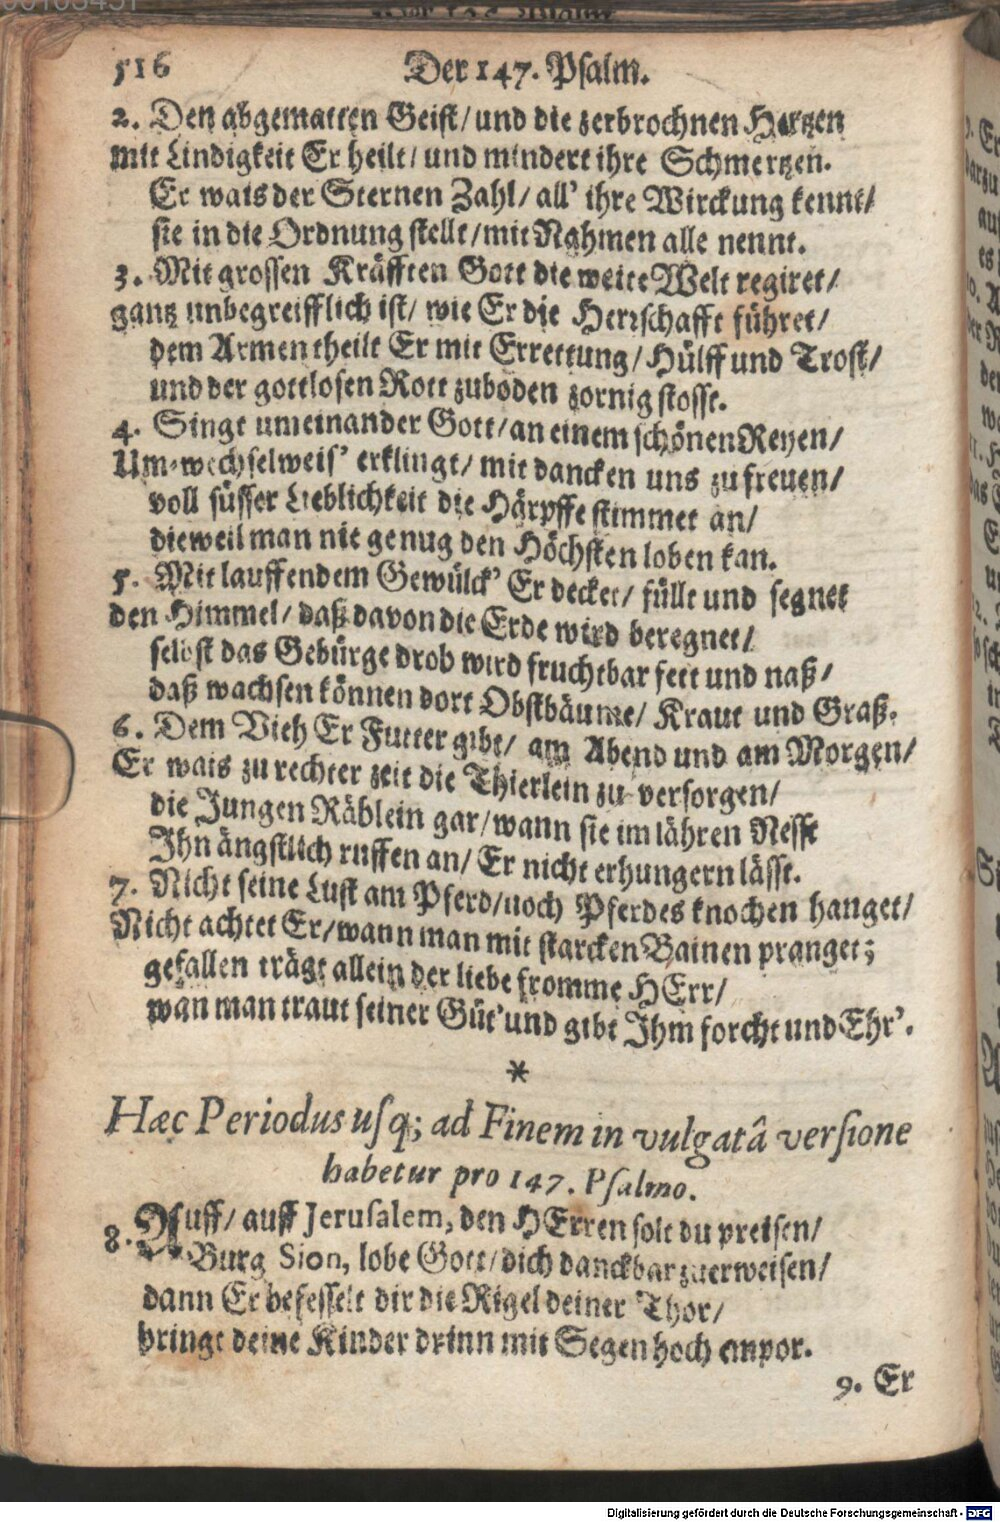 516 Der 147. Psalm.
2. Den abgematten Geist/ und die zerbrochnen Hertzen
mit Lindigkeit Er heilt/ und mindert ihre Schmertzen.
Er wais der Sternen Zahl/ all' ihre Wirckung kennt/
sie in die Ordnung stellt/ mit Nahmen alle nennt.
3. Mit grossen Kräfften Gott die weite Welt regiret/
gantz unbegreifflich ist/ wie Er die Herrschafft führet/
dem Armen theilt Er mit Errettung/ Hülff und Trost/
und der gottlosen Rott zuboden zornig stosst.
4. Singt umeinander Gott/ an einem schönen Reyen/
Um-wechselweis' erklingt/ mit dancken uns zu freuen/
voll süsser Lieblichkeit die Härpffe stimmet an/
dieweil man nie genug den Höchsten loben kan.
5. Mit lauffendem Gewülck' Er decket/ füllt und segnet
den Himmel/ daß davon die Erde wird beregnet/
selbst das Gebürge drob wird fruchtbar fett und naß/
daß wachsen können dort Obstbäume/ Kraut und Graß.
6. Dem Vieh Er Futter gibt/ am Abend und am Morgen/
Er wais zu rechter zeit die Thierlein zu versorgen/
die Jungen Räblein gar/ wann sie im lähren Nesst
Ihn ängstlich ruffen an/ Er nicht erhungern lässt.
7. Nicht seine Lust am Pferd/ noch Pferdes knochen hanget/
Nicht achtet Er/ wann man mit starcken Bainen pranget;
gefallen trägt allein der liebe fromme HErr/
wan man traut seiner Güt' und gibt Ihm forcht und Ehr'.
*
Hæc Periodus usq; ad Finem in vulgatâ versione
habetur pro 147. Psalmo.
8. Auff/ auff Jerusalem, den HErren solt du preisen/
Burg Sion, lobe Gott/ dich danckbar zuerweisen/
dann Er befesselt dir die Rigel deiner Thor/
bringt deine Kinder drinn mit Segen hoch empor.
9. Er
Digitalisierung gefördert durch die Deutsche Forschungsgemeinschaft - DFG